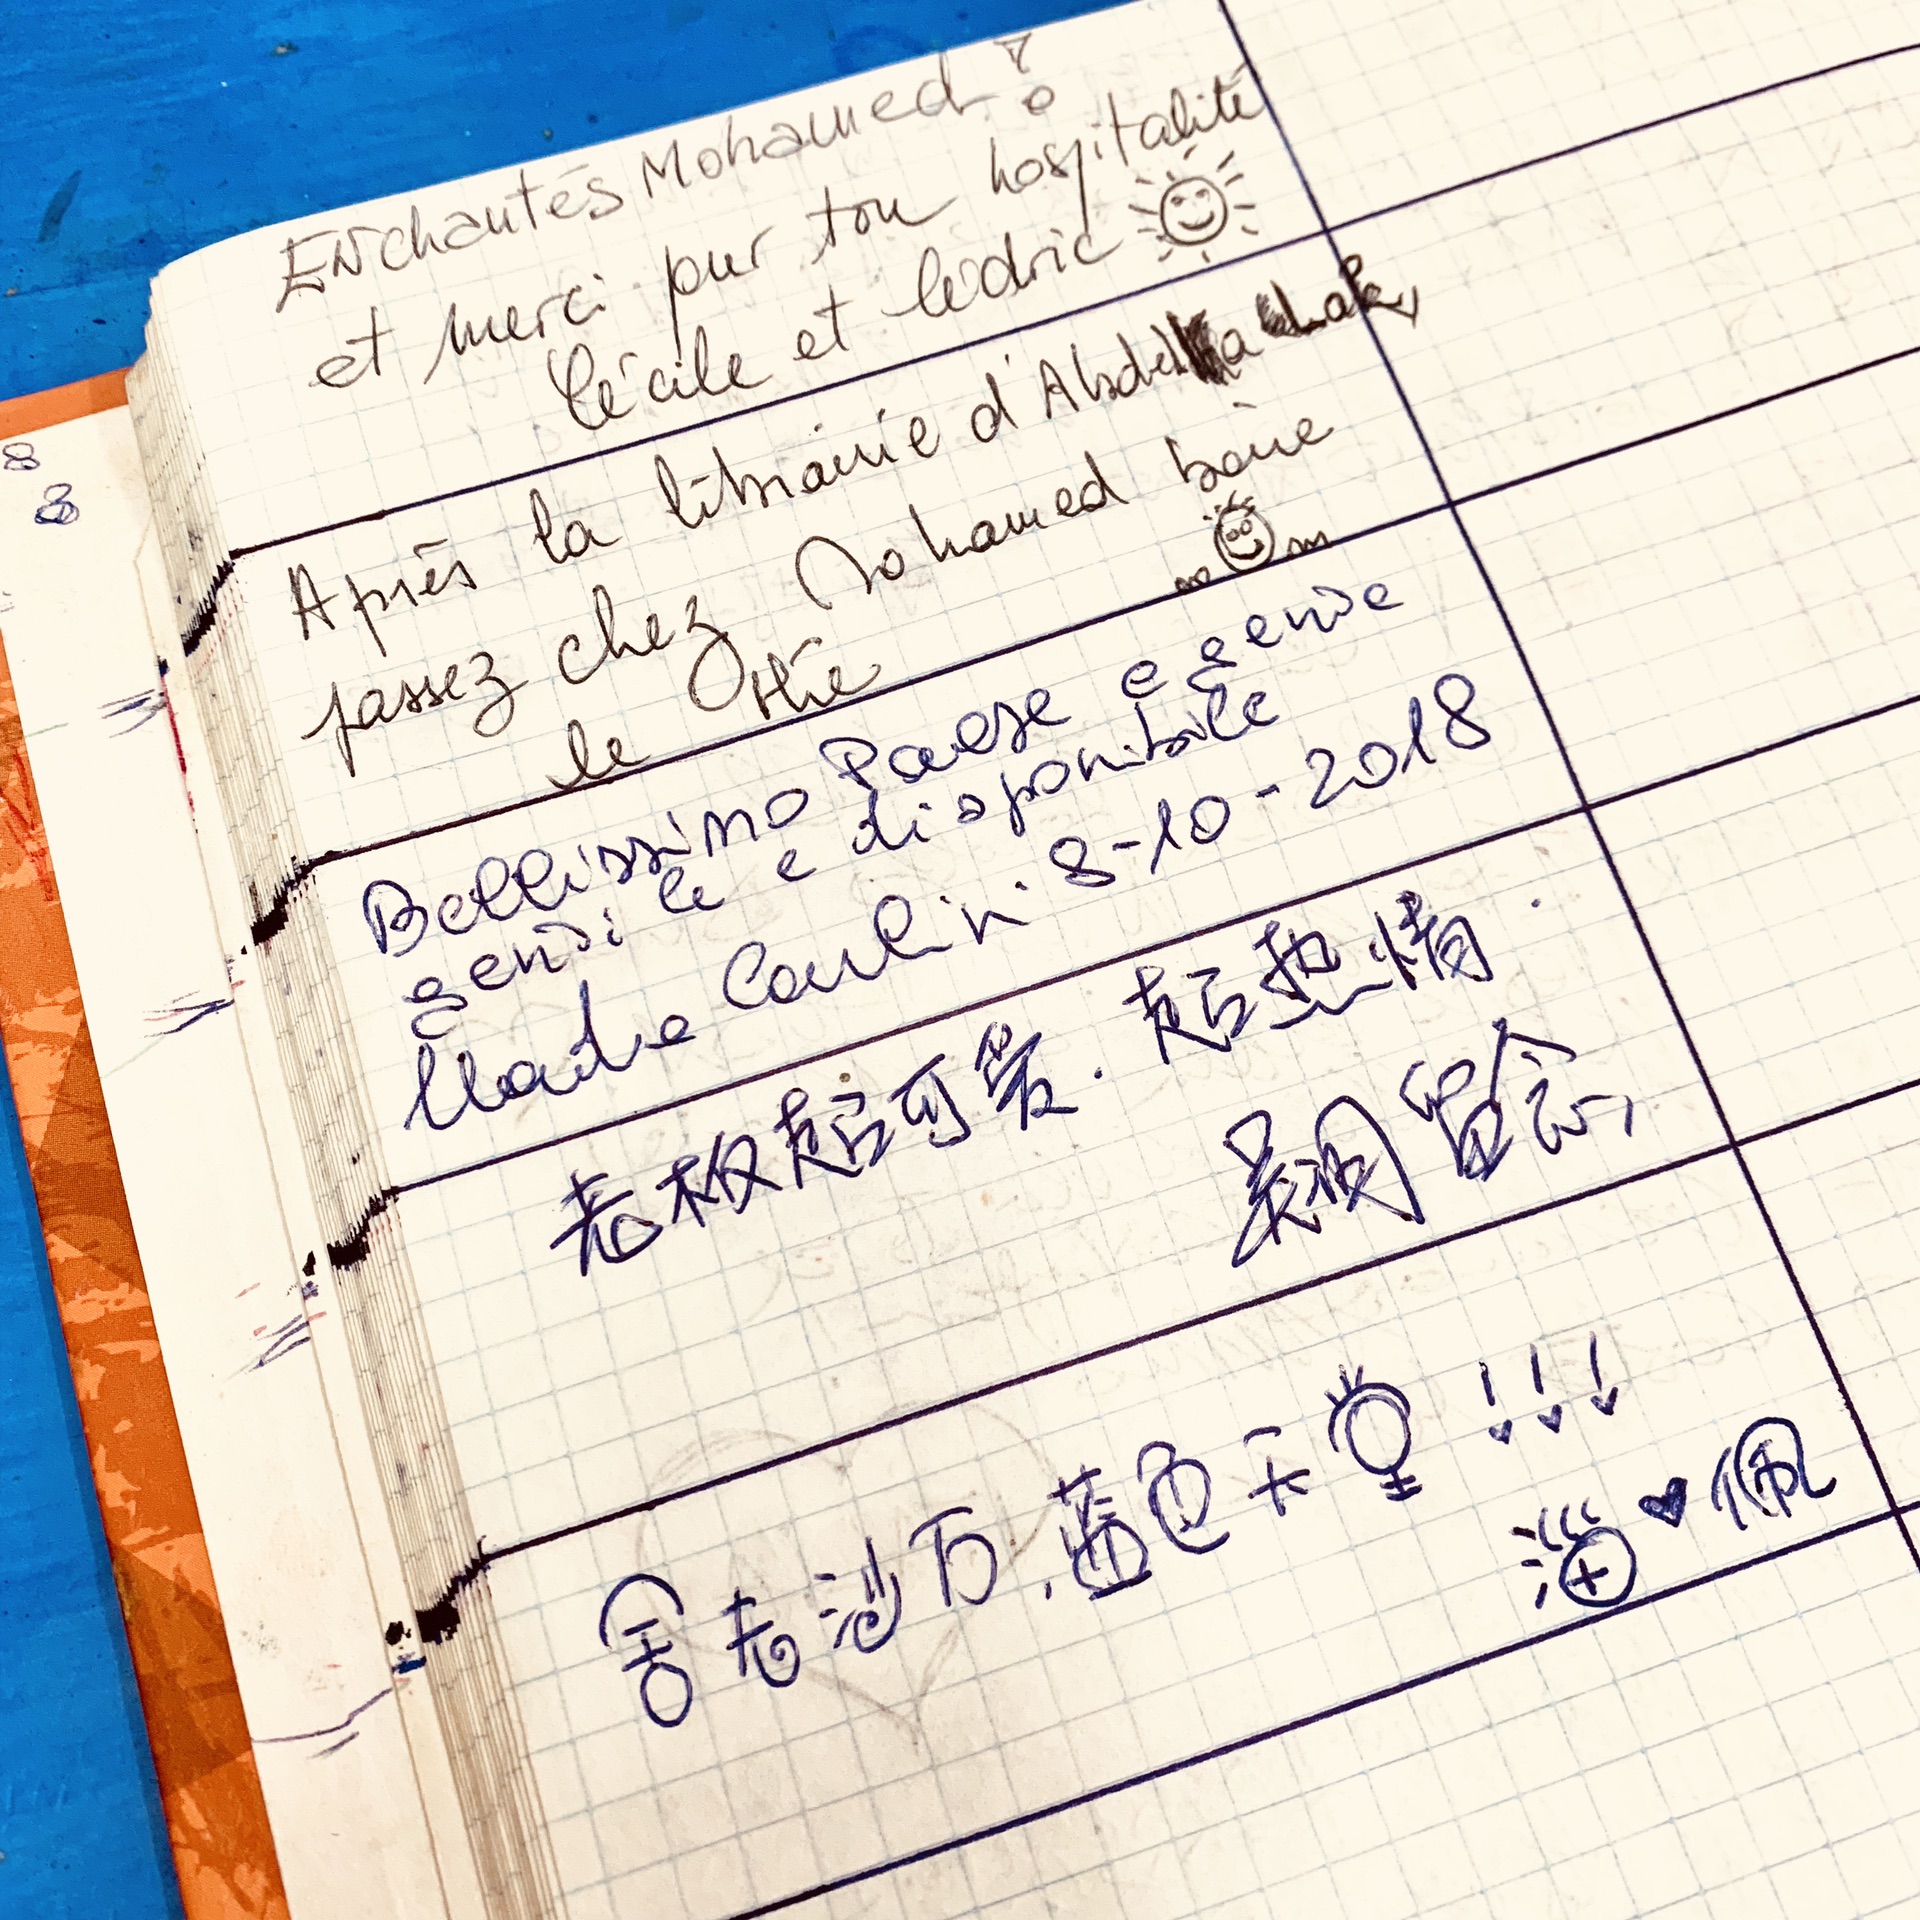 8
8
Enchantés Mohamed !
et merci pour ton hospitalité
Cécile et Cédric
Après la librairie d'Abdel
passez chez Mohamed boire
le thé
Bellissimo Paese e gente
gentile e disponibile
8-10-2018
老板超可爱. 超热情.
吴 留念,
舍夫沙万, 蓝色天堂!!!